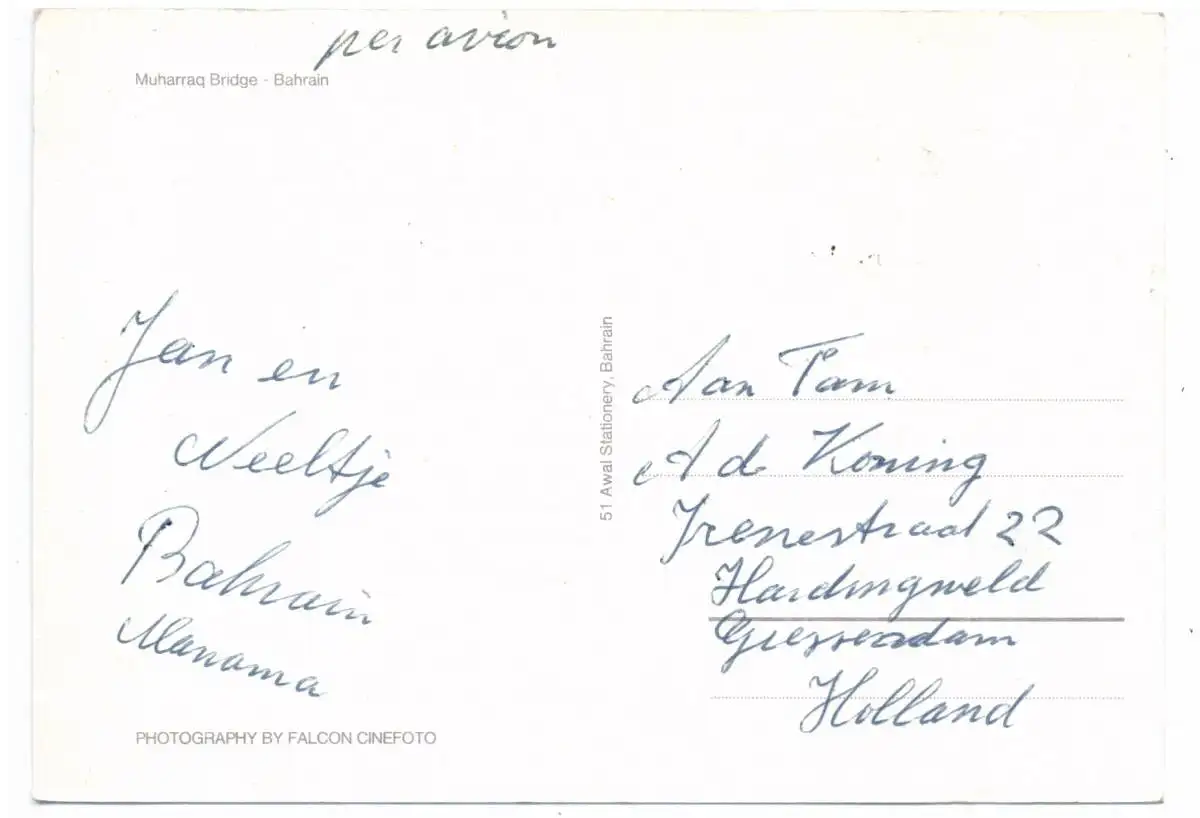 per avion
Muharraq Bridge - Bahrain
Jan en
Neeltje
Bahrain
Manama
PHOTOGRAPHY BY FALCON CINEFOTO
51 Awal Stationery, Bahrain
Aan Fam
A de Koning
Irenestraat 22
Hardingsveld
Giessendam
Holland